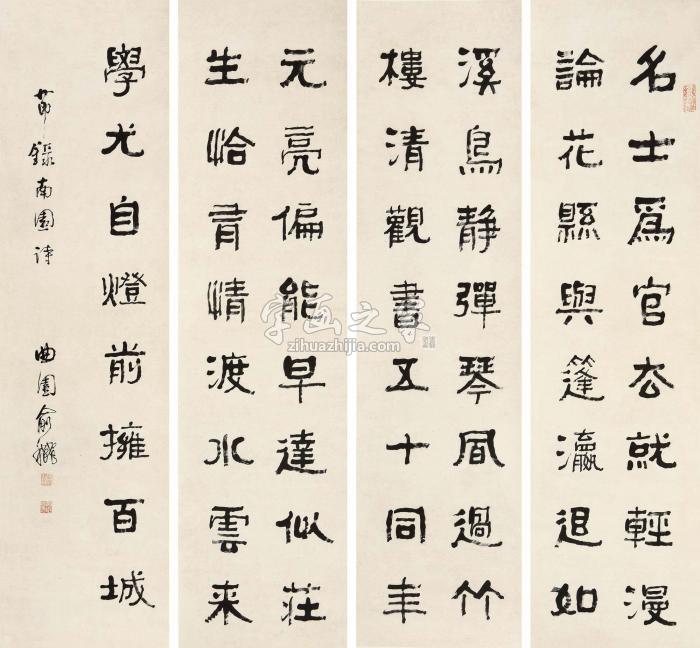 名士為官去就輕漫
論花縣與蓬瀛退如
溪鳥靜彈琴風過竹
樓清觀書五十同年
元亮偏能早達似莊
生恰有情渡水雲来
學尤自燈前擁百城
節錄南園詩 曲園俞樾
字画之家
zihuazhijia.com